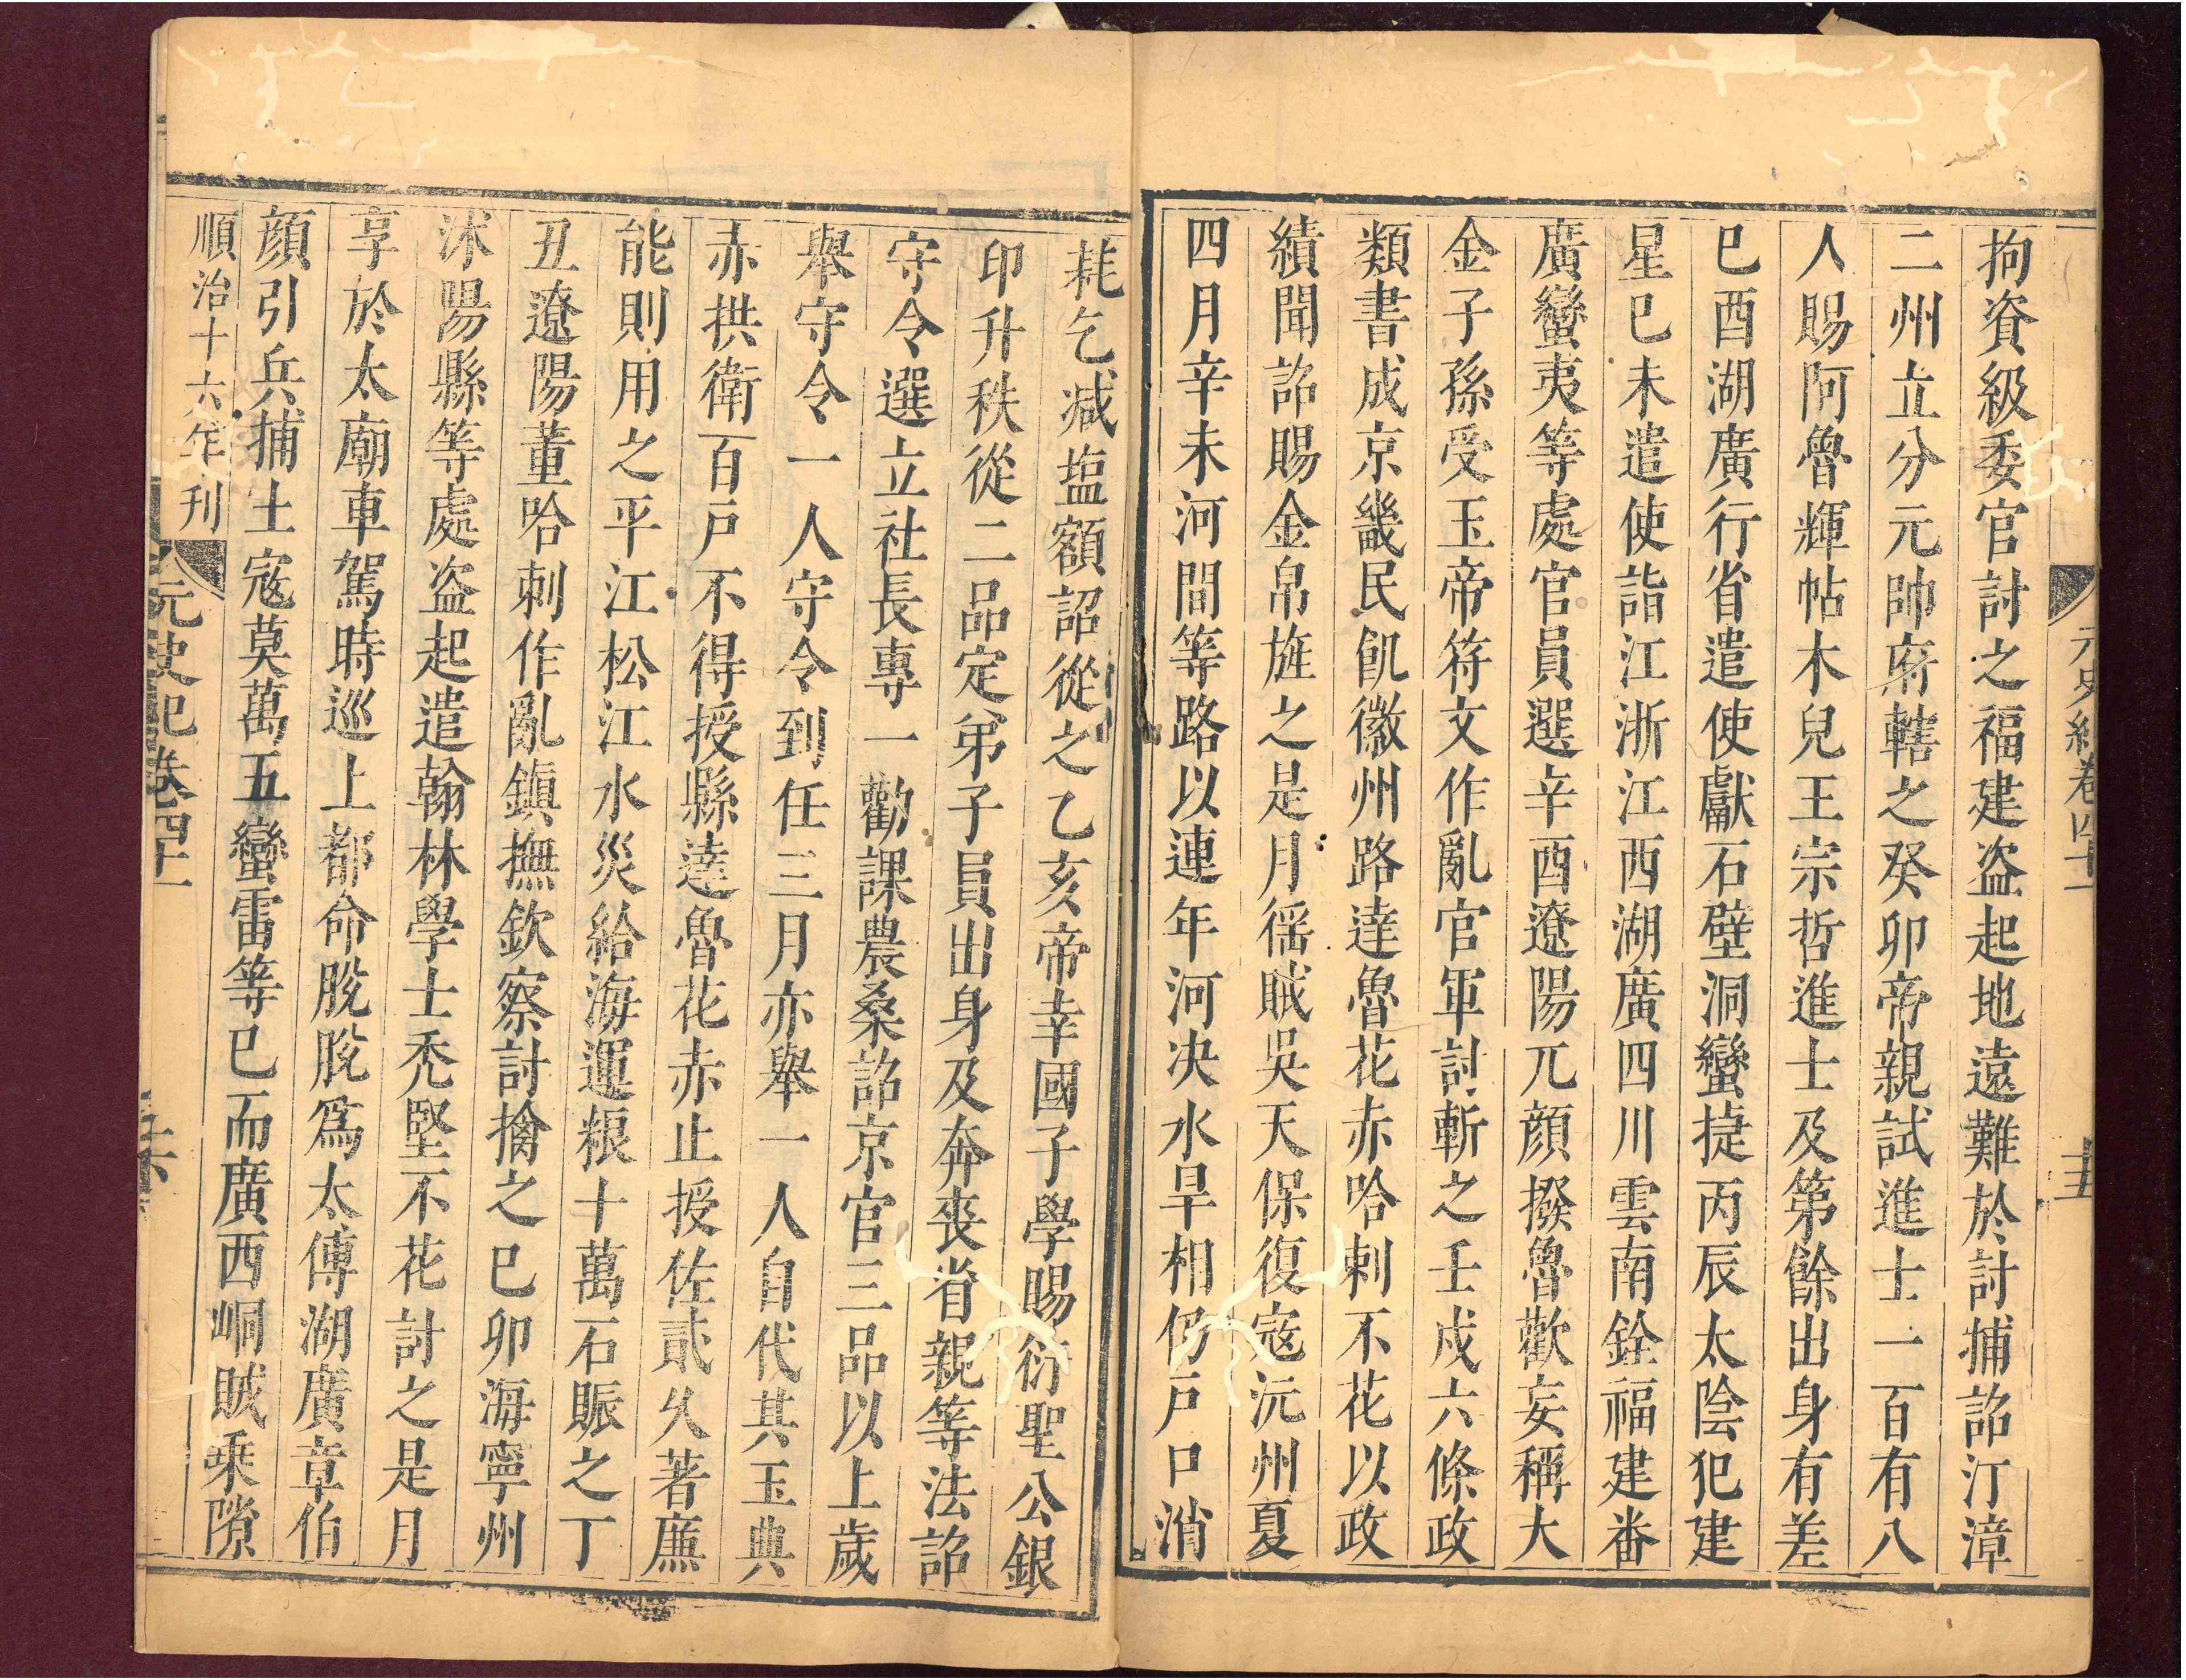 元史紀卷四十一
十五
拘資級委官討之福建盜起地遠難於討捕詔汀漳
二州立分元帥府轄之癸卯帝親試進士一百有八
人賜阿魯輝帖木兒王宗哲進士及第餘出身有差
巳酉湖廣行省遣使獻石壁洞蠻捷丙辰太陰犯建
星巳未遣使詣江浙江西湖廣四川雲南銓福建番
廣蠻夷等處官員選辛酉遼陽兀顏撥魯歡妄稱大
金子孫受玉帝符文作亂官軍討斬之壬戍六條政
類書成京畿民飢徽州路達魯花赤哈剌不花以政
績聞詔賜金帛旌之是月徭賊吳天保復寇沅州夏
四月辛未河間等路以連年河决水旱相仍戶口消
耗乞减塩額詔從之乙亥帝幸國子學賜衍聖公銀
印升秩從二品定弟子員出身及奔喪省親等法詔
守令選立社長專一勸課農桑詔京官三品以上歲
舉守令一人守令到任三月亦舉一人自代其玉典
赤拱衛百戸不得授縣達魯花赤止授佐貳久著廉
能則用之平江松江水災給海運粮十萬石賑之丁
丑遼陽董哈剌作亂鎮撫欽察討擒之巳卯海寧州
沭陽縣等處盜起遣翰林學士禿堅不花討之是月
享於太廟車駕時巡上都命脫脫爲太傅湖廣章伯
顏引兵捕土寇莫萬五蠻雷等巳而廣西峒賊乗隙
順治十六年刊
元史紀卷四十一
十六